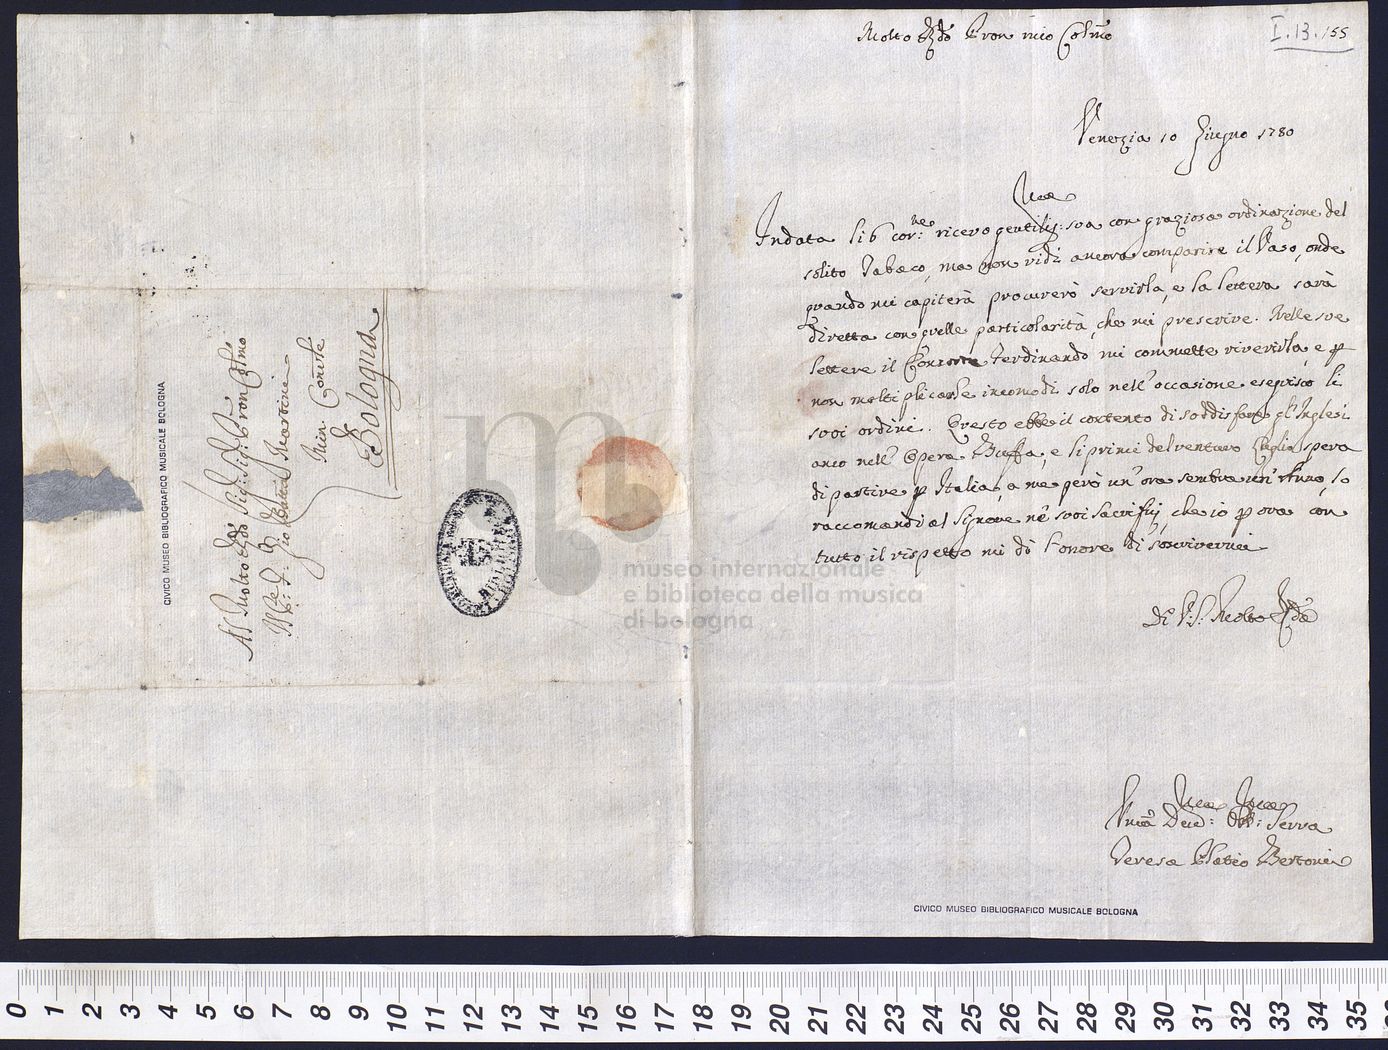 Molto Rñdo Pron mio Colmo
I.13.155
Venezia 10 Giugno 1780
In data li 6 cor:ne ricevo gentilis:ma sua con graziosa ordinazione del
solito Tabaco, ma non vidi ancora comparire il Vaso, onde
quando mi capiterà procurerò servirla, e la lettera sarà
diretta con quelle particolarità, che mi prescrive. Nelle sue
lettere il Ferdinando mi commette riverirla, e p
non moltiplicarle incomodi solo nell'occasione eseguisco li
suoi ordini. Questo ebbe il contento di soddisfare gl'Inglesi
anco nell'Opera Buffa, e li primi del venturo Luglio spera
di partire p Italia, a me però un'ora sembra un'anno, lo
raccomandi al Signore ne suoi sacrifizij, che io p ora con
tutto il rispetto mi dò l'onore di soscrivermi
Di V:S: Molto Rñda
Um̃a Dev:ma Obb:ma Serva
Teresa Bertoni
Al Molto Rñdo Sig: Sig: Pron Colmo
Il P: Gio: Batta Martini
Min: Conv̄le
Bologna
CIVICO MUSEO BIBLIOGRAFICO MUSICALE BOLOGNA
museo internazionale
e biblioteca della musica
di bologna
CIVICO MUSEO BIBLIOGRAFICO MUSICALE BOLOGNA
0 1 2 3 4 5 6 7 8 9 10 11 12 13 14 15 16 17 18 19 20 21 22 23 24 25 26 27 28 29 30 31 32 33 34 35